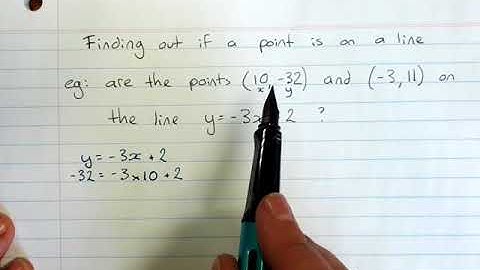 Finding out if a point is on a line
eg: are the points (10, -32) and (-3, 11) on
x y
the line y = -3x 2 ?
y = -3x + 2
-32 = -3 × 10 + 2